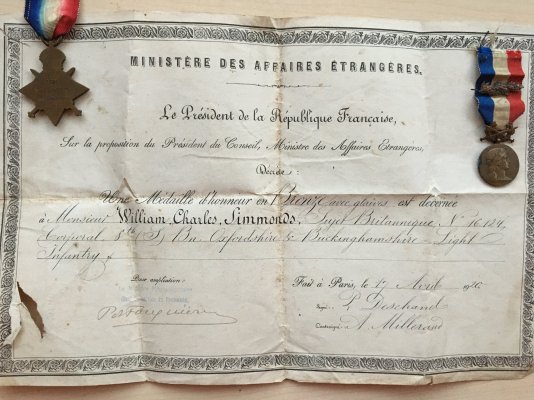 MINISTÈRE DES AFFAIRES ÉTRANGÈRES.
Le Président de la République Française,
Sur la proposition du Président du Conseil, Ministre des Affaires Étrangères,
Décide:
Une Médaille d'honneur en Bronze avec glaives est décernée
à Monsieur William, Charles, Simmonds, Sujet Britannique, N° 16.124,
Corporal, 8th (S) Bn. Oxfordshire & Buckinghamshire Light
Infantry
Pour ampliation:
Fait à Paris, le 17 Avril 1920
Signé: P. Deschanel
Contresigné: A. Millerand